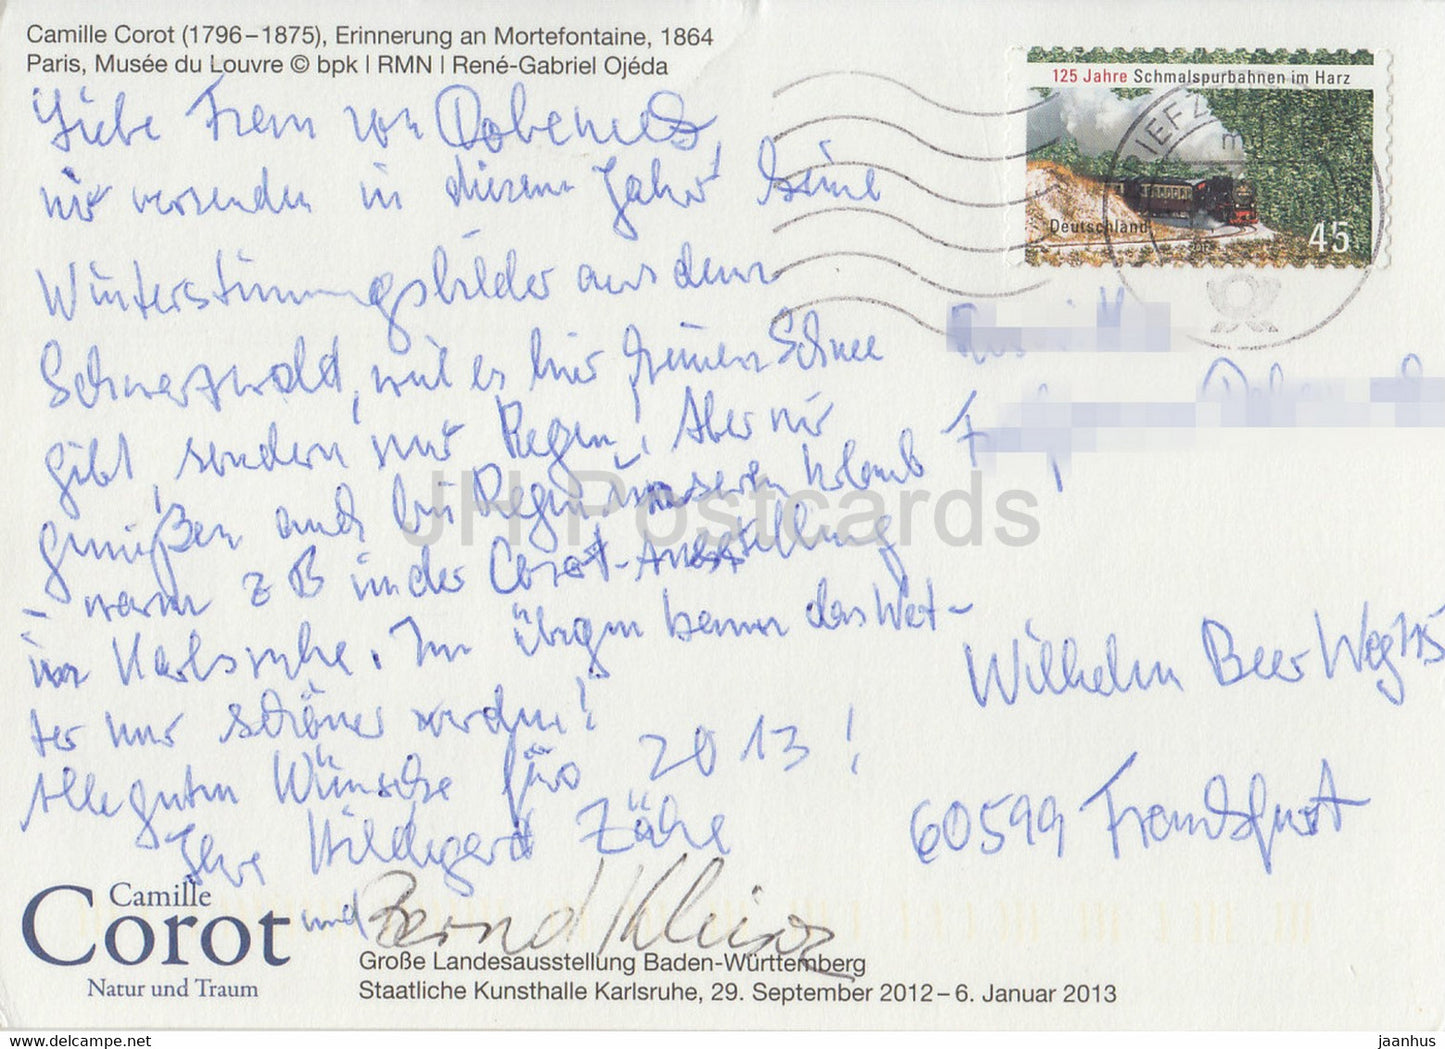 Camille Corot (1796–1875), Erinnerung an Mortefontaine, 1864
Paris, Musée du Louvre © bpk | RMN | René-Gabriel Ojéda
125 Jahre Schmalspurbahnen im Harz
Deutschland
45
IEFZ
Liebe Frau von Dobeneck,
wir versenden in diesem Jahr keine
Winterstimmungsbilder aus dem
Schwarzwald, weil es hier keinen Schnee
gibt, sondern nur Regen! Aber wir
genießen auch bei Regen unseren Urlaub
– warm z B in der Corot-Ausstellung
in Karlsruhe. Im übrigen kann das Wet-
ter nur schöner werden!
Alle guten Wünsche für 2013!
Ihre Hildegard Zähe
und Bernd
Wilhelm Beer Weg 115
60599 Frankfurt
JH Postcards
Camille
Corot
Natur und Traum
Große Landesausstellung Baden-Württemberg
Staatliche Kunsthalle Karlsruhe, 29. September 2012 – 6. Januar 2013
www.delcampe.net
jaanhus